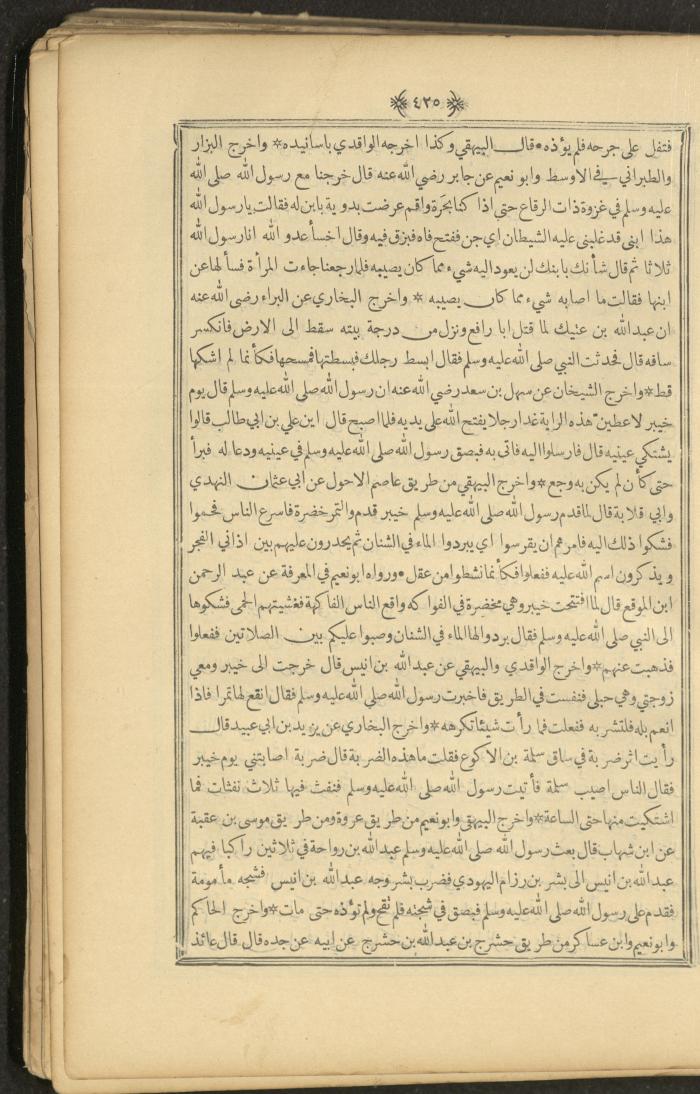 ﴿٤٣٥﴾
فتفل على جرحه فلم يؤذه • قال البيهقي وكذا اخرجه الواقدي باسانيده * واخرج البزار
والطبراني في الاوسط وابو نعيم عن جابر رضي الله عنه قال خرجنا مع رسول الله صلى الله
عليه وسلم في غزوة ذات الرقاع حتى اذا كنا بحرة واقم عرضت بدوية بابن له فقالت يارسول الله
هذا ابني قد غلبني عليه الشيطان اي جن ففتح فاه فبزق فيه وقال اخسأ عدو الله انا رسول الله
ثلاثا ثم قال شأنك بابنك لن يعود اليه شيء مما كان يصيبه فلما رجعنا جاءت المرأة فسألها عن
ابنها فقالت ما اصابه شيء مما كان يصيبه * واخرج البخاري عن البراء رضي الله عنه
ان عبدالله بن عتيك لما قتل ابا رافع ونزل من درجة بيته سقط الى الارض فانكسر
ساقه قال فحدثت النبي صلى الله عليه وسلم فقال ابسط رجلك فبسطتها فمسحها فكأنما لم اشكها
قط * واخرج الشيخان عن سهل بن سعد رضي الله عنه ان رسول الله صلى الله عليه وسلم قال يوم
خيبر لاعطينّ هذه الراية غدا رجلا يفتح الله على يديه فلما اصبح قال اين علي بن ابي طالب قالوا
يشتكي عينيه قال فارسلوا اليه فاتى به فبصق رسول الله صلى الله عليه وسلم في عينيه ودعا له فبرأ
حتى كأن لم يكن به وجع * واخرج البيهقي من طريق عاصم الاحول عن ابي عثمان النهدي
وابي قلابة قال لما قدم رسول الله صلى الله عليه وسلم خيبر قدم والتمر خضرة فاسرع الناس فحموا
فشكوا ذلك اليه فامرهم ان يقرسوا اي يبردوا الماء في الشنان ثم يحدرون عليهم بين اذاني الفجر
ويذكرون اسم الله عليه ففعلوا فكأنما نشطوا من عقل • ورواه ابونعيم في المعرفة عن عبد الرحمن
ابن الموقع قال لما افتتحت خيبر وهي مخضرة في الفواكه واقع الناس الفاكهة فغشيتهم الحمى فشكوها
الى النبي صلى الله عليه وسلم فقال بردوا لها الماء في الشنان وصبوا عليكم بين الصلاتين ففعلوا
فذهبت عنهم * واخرج الواقدي والبيهقي عن عبدالله بن انيس قال خرجت الى خيبر ومعي
زوجتي وهي حبلى فنفست في الطريق فاخبرت رسول الله صلى الله عليه وسلم فقال انقع لها تمرا فاذا
انعم بله فلتشربه ففعلت فما رأت شيئا تكرهه * واخرج البخاري عن يزيد بن ابي عبيد قال
رأيت اثر ضربة في ساق سلمة بن الاكوع فقلت ما هذه الضربة قال ضربة اصابتني يوم خيبر
فقال الناس اصيب سلمة فأتيت رسول الله صلى الله عليه وسلم فنفث فيها ثلاث نفثات فما
اشتكيت منها حتى الساعة * واخرج البيهقي وابو نعيم من طريق عروة ومن طريق موسى بن عقبة
عن ابن شهاب قال بعث رسول الله صلى الله عليه وسلم عبدالله بن رواحة في ثلاثين راكبا فيهم
عبدالله بن انيس الى بشر بن رزام اليهودي فضرب بشر وجه عبدالله بن انيس فشجه مأمومة
فقدم على رسول الله صلى الله عليه وسلم فبصق في شجته فلم تقح ولم تؤذه حتى مات * واخرج الحاكم
وابونعيم وابن عساكر من طريق حشرج بن عبدالله بن حشرج عن ابيه عن جده قال قال عائذ